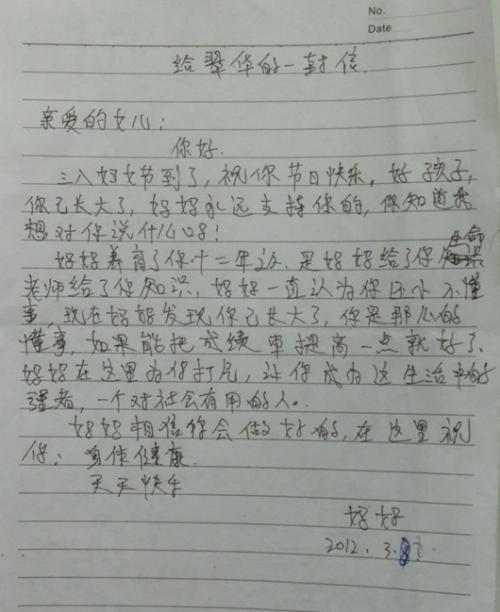 No.
Date
给翠华的一封信
亲爱的女儿:
你好.
三八妇女节到了,祝你节日快乐,好孩子,
你已长大了,妈妈永远支持你的,你知道我
想对你说什么吗!
妈妈养育了你十二年.是妈妈给了你生命
老师给了你知识,妈妈一直认为你还小不懂
事,现在妈妈发现你已长大了,你是那么的
懂事,如果能把成绩单提高一点就好了.
妈妈在这里为你打气,让你成为这生活中的
强者,一个对社会有用的人。
妈妈相信你会做好的,在这里祝
你:身体健康.
天天快乐
妈妈
2012.3.